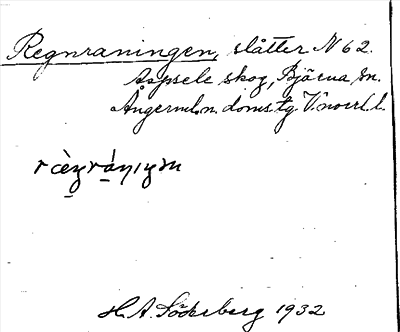 Regnraningen, slåtter N 62.
Aspsele skog, Björna sn.
Ångerml.n. doms.tg. V.norrl.l.
ræ̀ŋrániŋən
H.A. Söderberg 1932